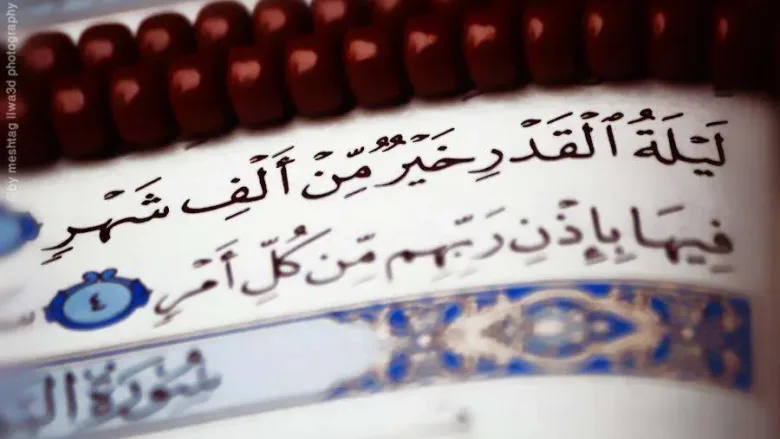 by meshtag liwa3d photography
لَيْلَةُ ٱلْقَدْرِ خَيْرٌ مِّنْ أَلْفِ شَهْرٍ
فِيهَا بِإِذْنِ رَبِّهِم مِّن كُلِّ أَمْرٍ ٤
سُورَةُ